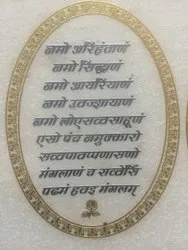 नमो अरिहंताणं
नमो सिद्धाणं
नमो आयरियाणं
नमो उवज्झायाणं
नमो लोएसव्वसाहूणं
एसो पंच नमुक्कारो
सव्वपावप्पणासणो
मंगलाणं च सव्वेसिं
पढमं हवइ मंगलम्